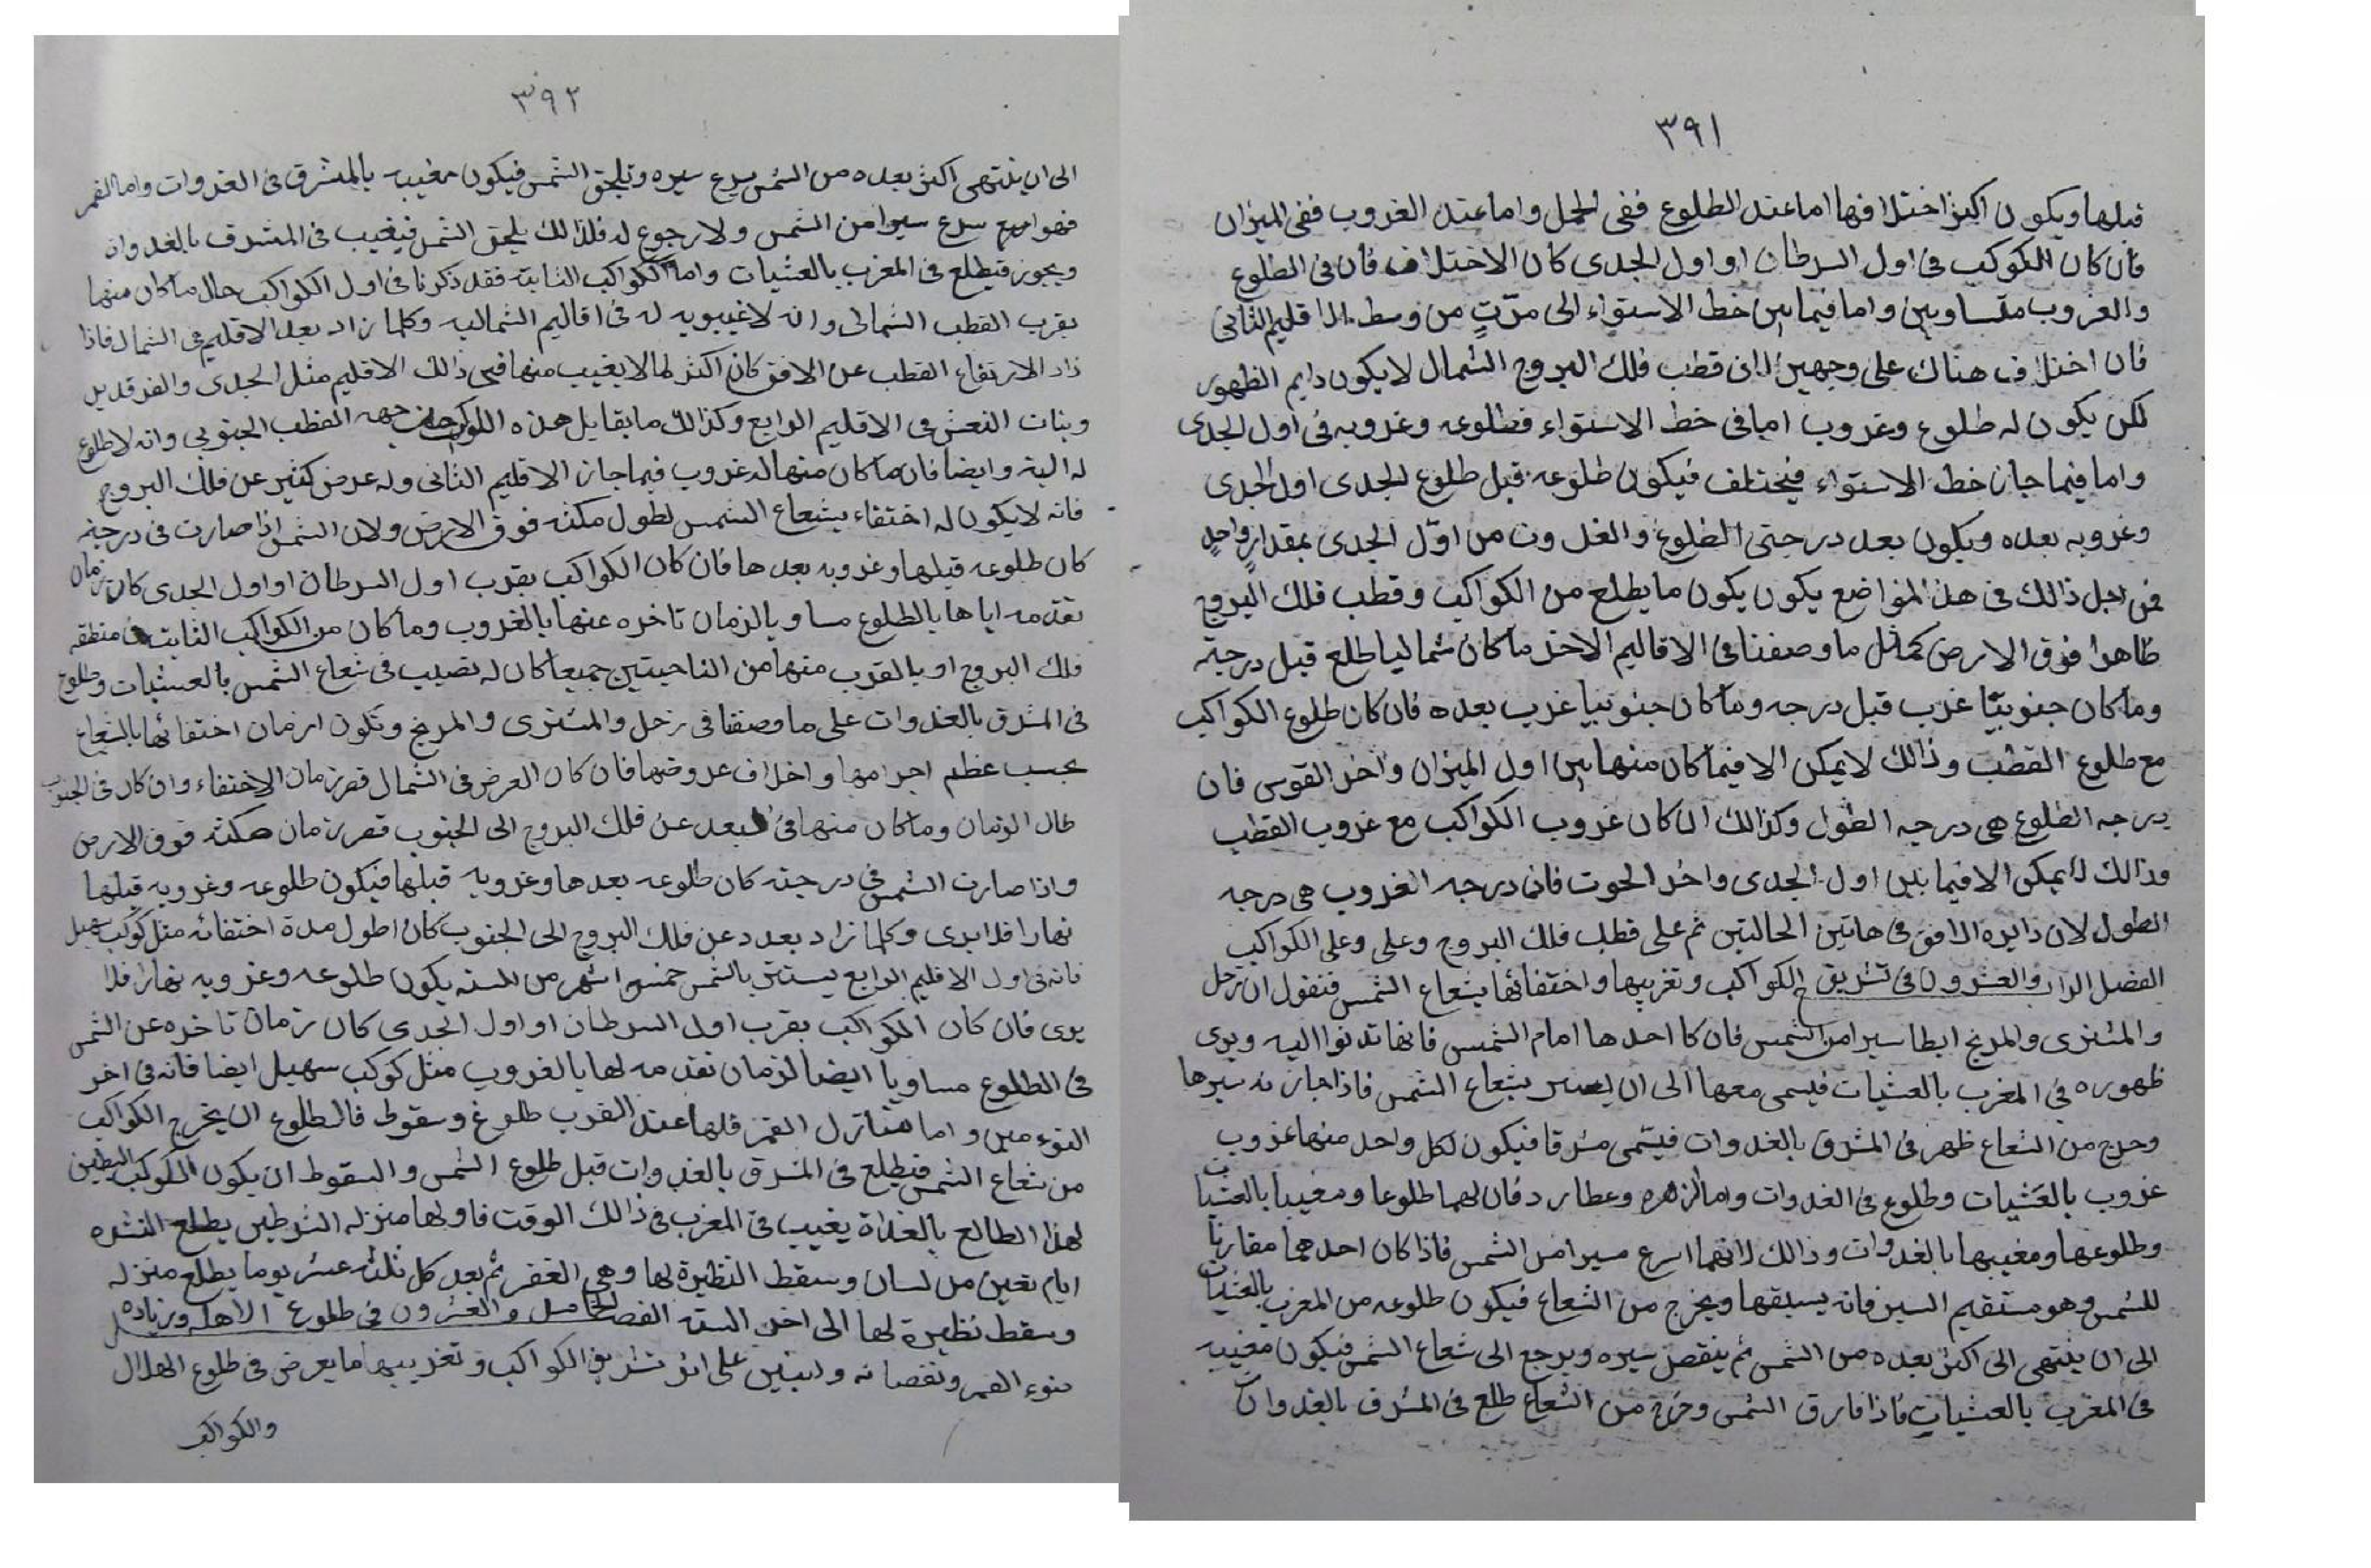 ٣٩١
قبلها ويكون اكثر اختلافها اما عند الطلوع ففى الحمل واما عند الغروب ففى الميزان
فان كان الكوكب فى اول السرطان او اول الجدى كان الاختلاف فان فى الطلوع
والغروب متساويين واما فيما بين خط الاستواء الى من وسط الاقليم الثانى
فان اختلاف هناك على وجهين لان قطب فلك البروج الشمال لا يكون دايم الظهور
لكن يكون له طلوع وغروب اما فى خط الاستواء فطلوعه وغروبه فى اول الجدى
واما فيما جاز خط الاستواء فيختلف فيكون طلوعه قبل طلوع الجدى اول الجدى
وغروبه بعده ويكون بعد درجتى الطلوع والغروب من اوّل الجدى بمقدارٍ واحدٍ
فمن اجل ذالك فى هذ المواضع يكون يكون ما يطلع من الكواكب وقطب فلك البروج
ظاهرا فوق الارض كمثل ما وصفنا فى الاقاليم الاخر ما كان شماليا طلع قبل درجته
وما كان جنوبيّا غرب قبل درجه وما كان جنوبيا غرب بعده فان كان طلوع الكواكب
مع طلوع القطب وذالك لا يمكن الا فيما كان منها بين اول الميزان واخر القوس فان
درجه الطلوع هى درجه الطول وكذالك ان كان غروب الكواكب مع غروب القطب
وذالك لا يمكن الا فيما بين اول الجدى واخر الحوت فان درجه الغروب هى درجه
الطول لان دايره الافق فى هاتين الحالتين ثم على قطب فلك البروج وعلى وعلى الكواكب
الفصل الرابع والعشرون فى تشريق الكواكب وتغريبها واختفائها بشعاع الشمس فنقول ان زحل
والمشترى والمريخ ابطا سيرا من الشمس فان كا احدها امام الشمس فانها تدنوا اليه ويرى
ظهوره فى المغرب بالعشيات فيسمى معها الى ان يستتر بشعاع الشمس فاذا جازته سيرها
وخرج من الشعاع ظهر فى المشرق بالغدوات فيسّمى مشرقا فيكون لكل واحد منها غروب
غروب بالعشيات وطلوع فى الغدوات واما الزهره وعطارد فان لهما طلوعا ومغيبا بالعشيات
وطلوعها ومغيبها بالغدوات وذالك لانهما اسرع سيرا من الشمس فاذا كان احدهما مقارنا
للشمس وهو مستقيم السير فانه يسبقها ويخرج من الشعاع فيكون طلوعه من المغرب بالعشيات
الى ان ينتهى الى اكثر بعده من الشمس ثم ينقص سيره ويرجع الى شعاع الشمس فيكون مغيبه
فى المغرب بالعشيات فاذا فارق الشمس وخرج من الشعاع طلع فى المشرق بالغدوات
٣٩٢
الى ان ينتهى اكثر بعده من الشمس يسرع سيره ويلحق الشمس فيكون مغيبه بالمشرق فى الغدوات واما القمر
فهو اسرع سيرا من الشمس ولا رجوع له فلذالك يلحق الشمس فيغيب فى المشرق بالغدوات
ويجوز فيطلع فى المغرب بالعشيات واما الكواكب الثابته فقد ذكرنا فى اول الكواكب حال ما كان منها
بقرب القطب الشمالى وانه لا غيبوبه له فى اقاليم الشماليه وكلما زاد بعد الاقليم فى الشمال فاذا
زاد الارتفاع القطب عن الافق كان اكثر لما لا يغيب منها فى ذالك الاقليم مثل الجدى والفرقدين
وبنات النعش فى الاقليم الرابع وكذالك ما يقابل هذه الكواكب من جهه القطب الجنوبى وانه لا طلوع
له البته وايضا فان ما كان منها له غروب فيما جاز الاقليم الثانى وله عرض كثير عن فلك البروج
فانه لا يكون له اختفاء بشعاع الشمس لطول مكثه فوق الارض ولان الشمس اذا صارت فى درجته
كان طلوعه قبلها وغروبه بعدها فان كان الكواكب بقرب اول السرطان او اول الجدى كان زمان
تقدمه اياها بالطلوع مساويا لزمان تاخره عنها بالغروب وما كان من الكواكب الثابته فى منطقه
فلك البروج او بالقرب منها من الناحيتين جميعا كان له نصيب فى شعاع الشمس بالعشيات وطلوع
فى المشرق بالغدوات على ما وصفنا فى زحل والمشترى والمريخ وتكون ازمان اختفائها بالشعاع
بحسب عظم اجرامها واختلاف عروضها فان كان العرض فى الشمال قصر زمان الاختفاء وان كان فى الجنوب
طال الزمان وما كان منها فى البعد عن فلك البروج الى الجنوب قصر زمان مكثه فوق الارض
واذا صارت الشمس فى درجته كان طلوعه بعدها وغروبه قبلها فيكون طلوعه وغروبه قبلها
نهارا فلا يرى وكلما زاد بعده عن فلك البروج الى الجنوب كان اطول مدة اختفائه مثل كوكب سهيل
فانه فى اول الاقليم الرابع يستتر بالشمس خمسة اشهر من السنه يكون طلوعه وغروبه نهارا فلا
يرى فان كان الكواكب بقرب اول السرطان او اول الجدى كان زمان تاخره عن الشمس
فى الطلوع مساويا ايضا لزمان تقدمه لها بالغروب مثل كوكب سهيل ايضا فانه فى اخر
واما منازل القمر فلها عند القرب طلوع وسقوط فالطلوع ان يخرج الكواكب
من شعاع الشمس فيطلع فى المشرق بالغدوات قبل طلوع الشمس والسقوط ان يكون الكوكب النظير
لهذا الطالع بالغداة يغيب فى المغرب فى ذالك الوقت فاولها منزله الشرطين يطلع
ايام تغيين من لسان وسقط النظيرة لها وهى الغفر ثم بعد كل ثلثه عشر يوما يطلع منزله
وسقط نظيرة لها الى اخر السنه الفصل الخامس والعشرون فى طلوع الاهله وزياده
ضوء القمر ونقصانه على اثر تشريق الكواكب وتغريبها ما يعرض فى طلوع الهلال
والكواكب